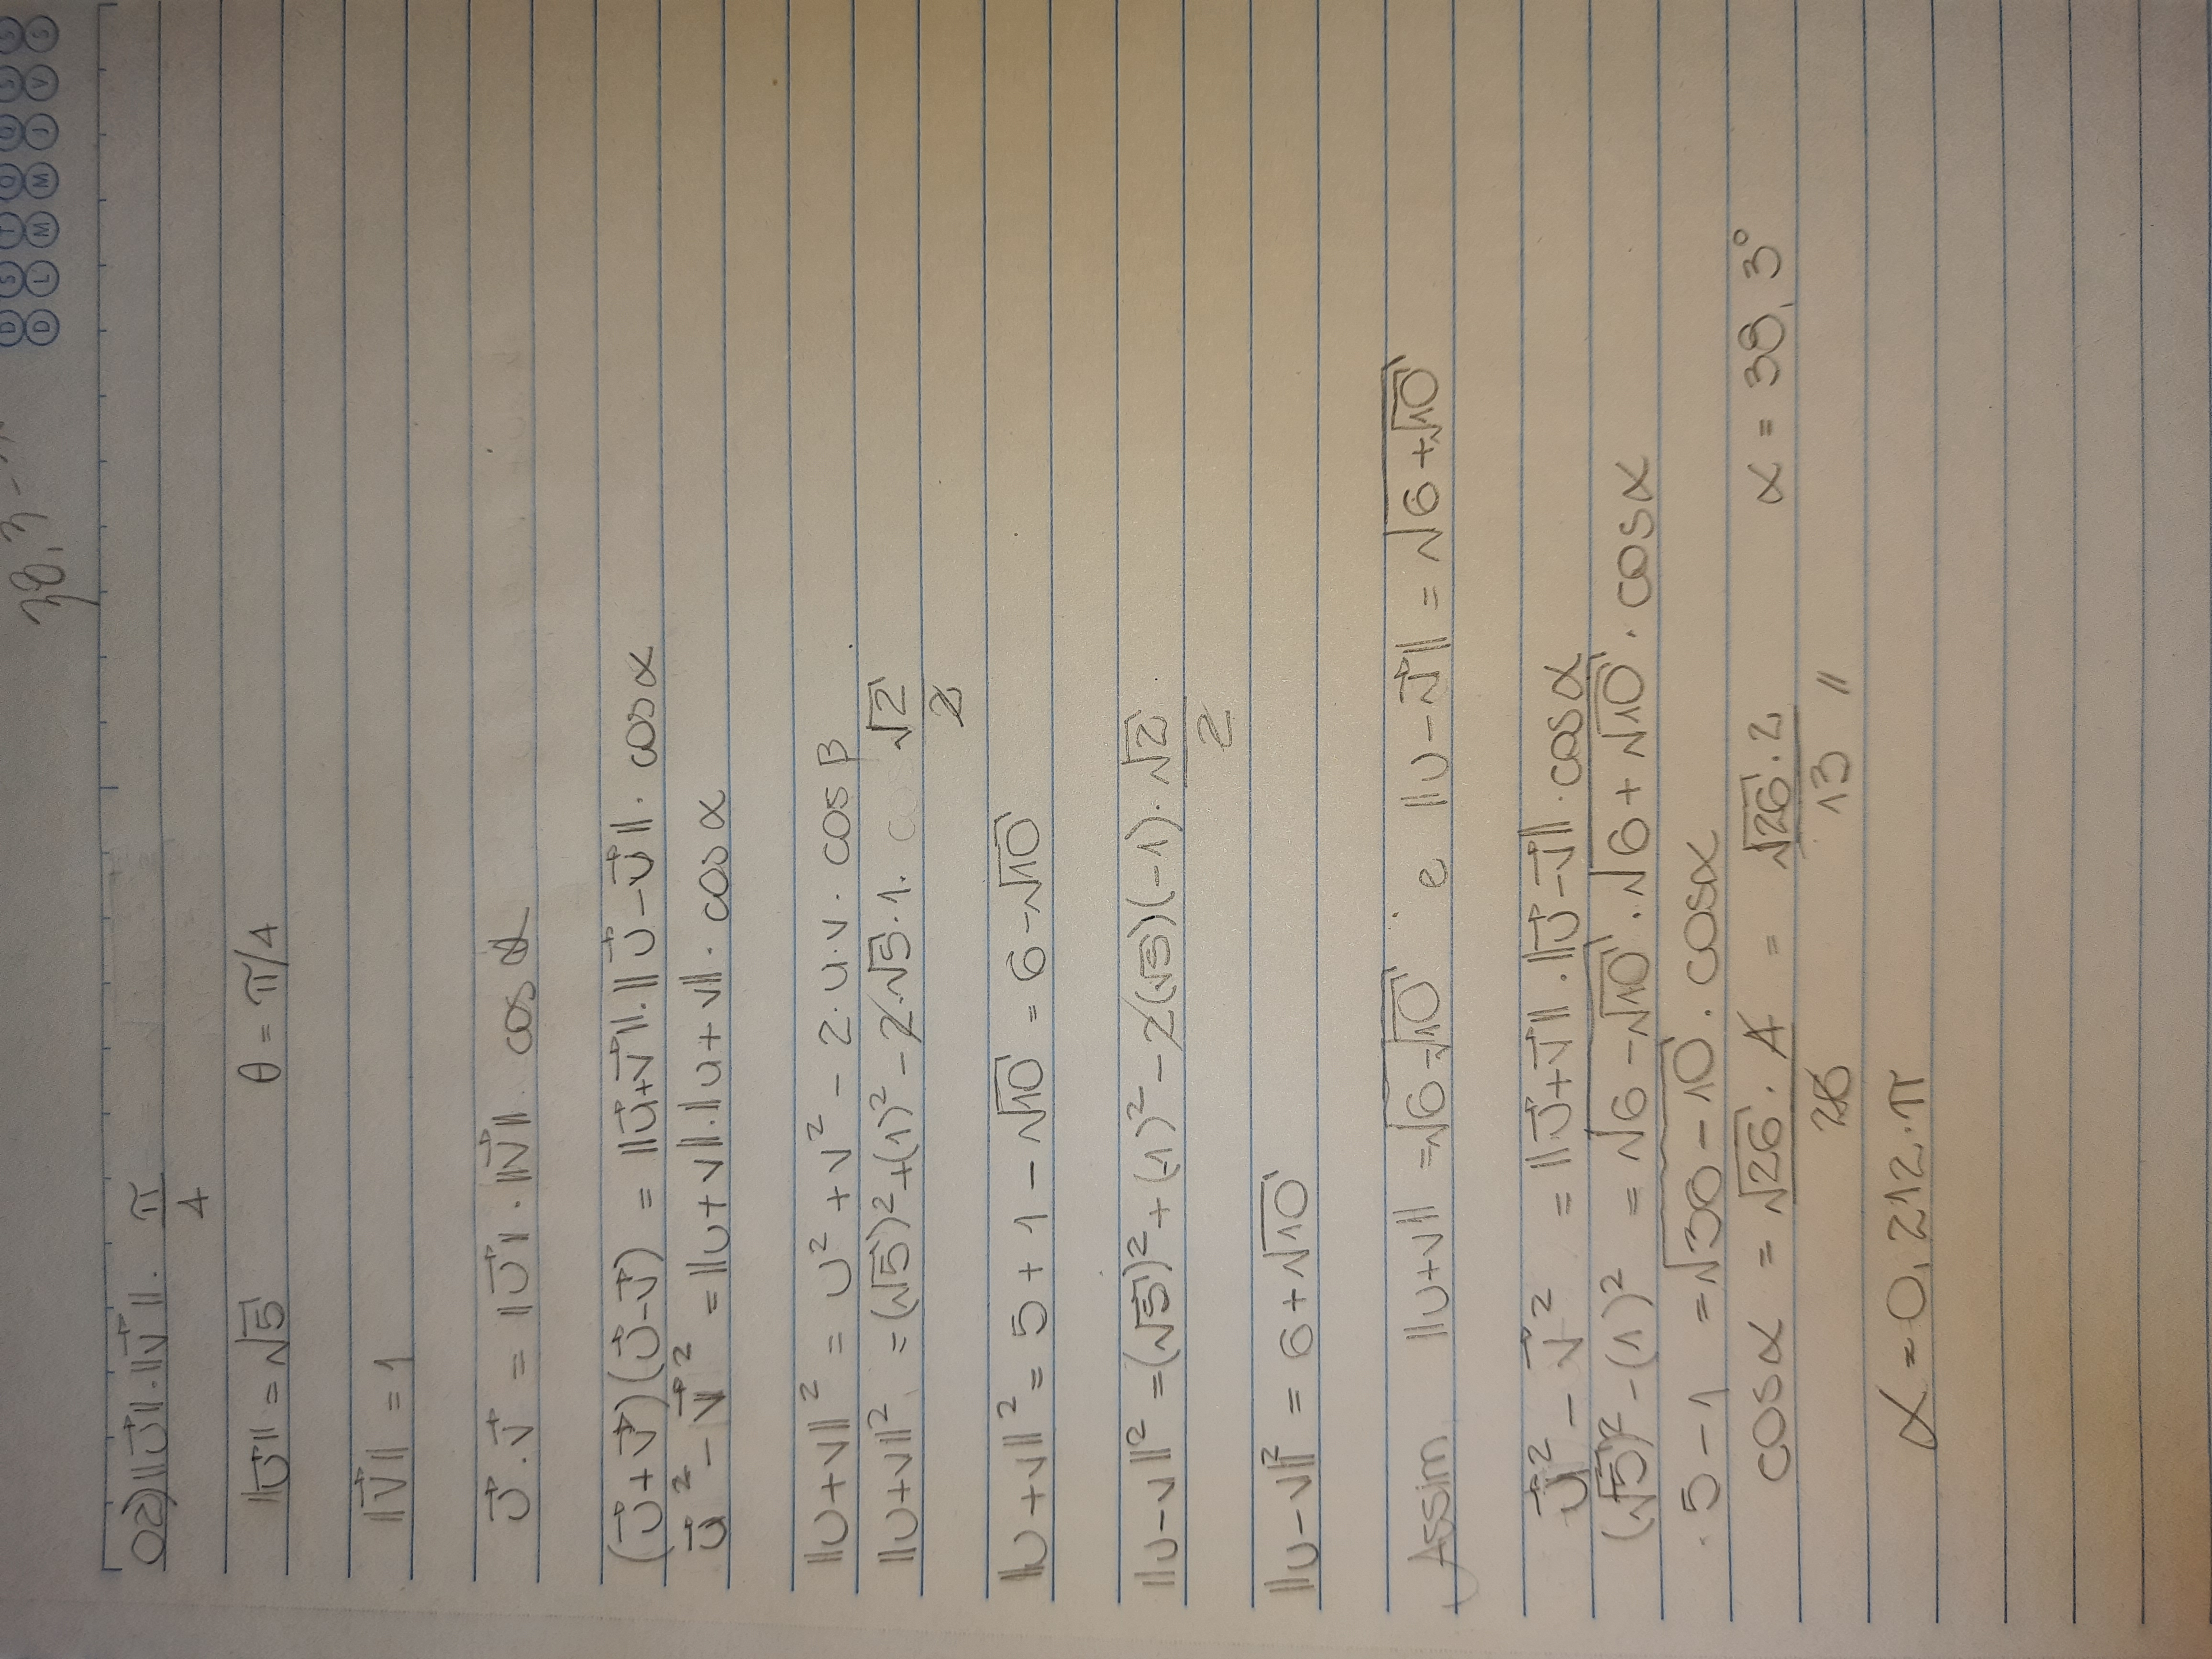 38,3
D S T Q Q S S
D L M M J V S
02) ||u⃗||.||v⃗||. π/4
||u⃗|| = √5 θ = π/4
||v⃗|| = 1
u⃗.v⃗ = ||u⃗||.||v⃗||. cos α
(u⃗+v⃗)(u⃗-v⃗) = ||u⃗+v⃗||.||u⃗-v⃗||. cos α
u⃗² - v⃗² = ||u+v||.||u+v||. cos α
||u+v||² = u² + v² - 2.u.v. cos β
||u+v||² = (√5)² + (1)² - 2.√5.1. √2/2
||u+v||² = 5 + 1 - √10 = 6-√10
||u-v||² = (√5)² + (-1)² - 2(√5)(-1). √2/2
||u-v||² = 6+√10
Assim ||u+v|| = √(6-√10) e ||u-v⃗|| = √(6+√10)
u⃗² - v⃗² = ||u⃗+v⃗||.||u⃗-v⃗||. cos α
(√5)² - (1)² = √(6-√10).√(6+√10). cos α
5-1 = √(36-10). cos α
cos α = √26.4/26 = √26.2/13 // α = 38,3°
α = 0,212.π